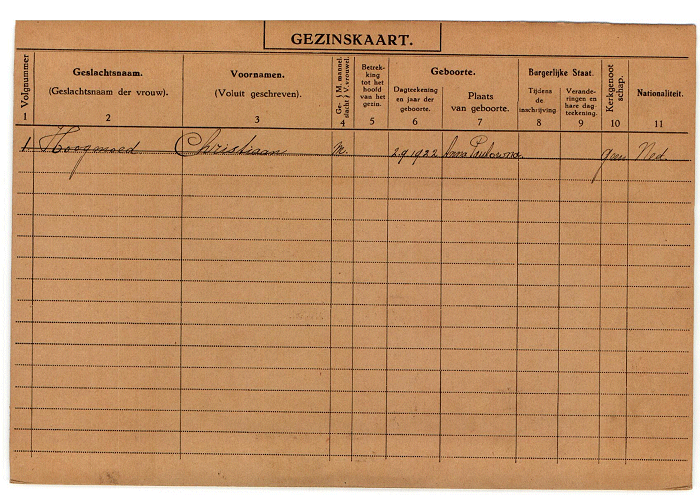 GEZINSKAART.
Volgnummer
Geslachtsnaam.
(Geslachtsnaam der vrouw).
Voornamen.
(Voluit geschreven).
Ge- M. mannel.
slacht V. vrouwel.
Betrek-
king
tot het
hoofd
van het
gezin.
Geboorte.
Dagteekening
en jaar der
geboorte.
Plaats
van geboorte.
Burgerlijke Staat.
Tijdens
de
inschrijving.
Verande-
ringen en
hare dag
teekening.
Kerkgenoot
schap.
Nationaliteit.
1 2 3 4 5 6 7 8 9 10 11
1. Hoogmoed Christiaan M. 2 9 1922 Anna Paulowna. geen Ned.